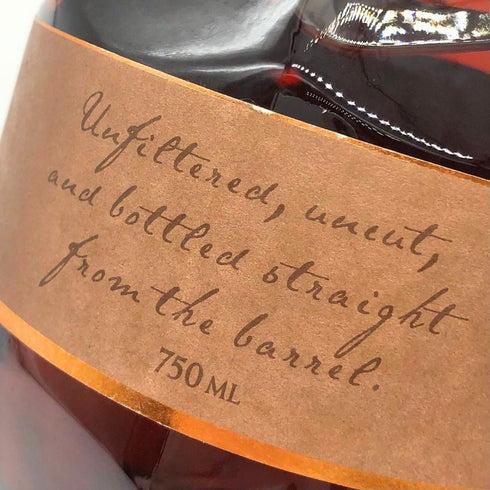 Unfiltered, uncut,
and bottled straight
from the barrel.
750 ML